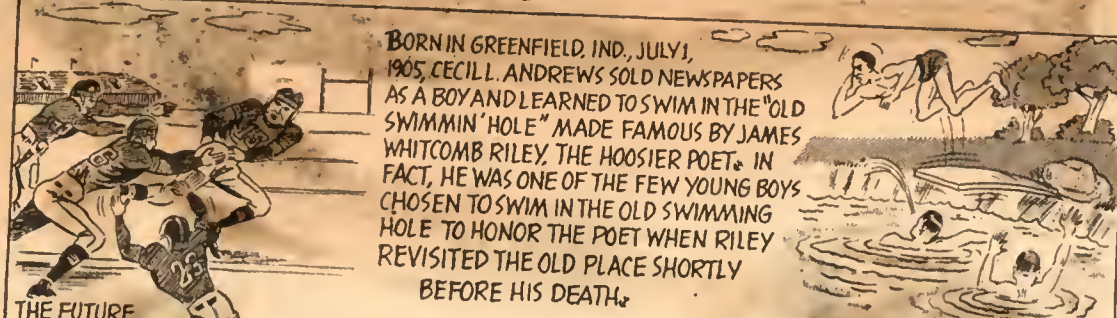 BORN IN GREENFIELD, IND., JULY 1,
1905, CECIL L. ANDREWS SOLD NEWSPAPERS
AS A BOY AND LEARNED TO SWIM IN THE "OLD
SWIMMIN' HOLE" MADE FAMOUS BY JAMES
WHITCOMB RILEY, THE HOOSIER POET. IN
FACT, HE WAS ONE OF THE FEW YOUNG BOYS
CHOSEN TO SWIM IN THE OLD SWIMMING
HOLE TO HONOR THE POET WHEN RILEY
REVISITED THE OLD PLACE SHORTLY
BEFORE HIS DEATH.
23
THE FUTURE